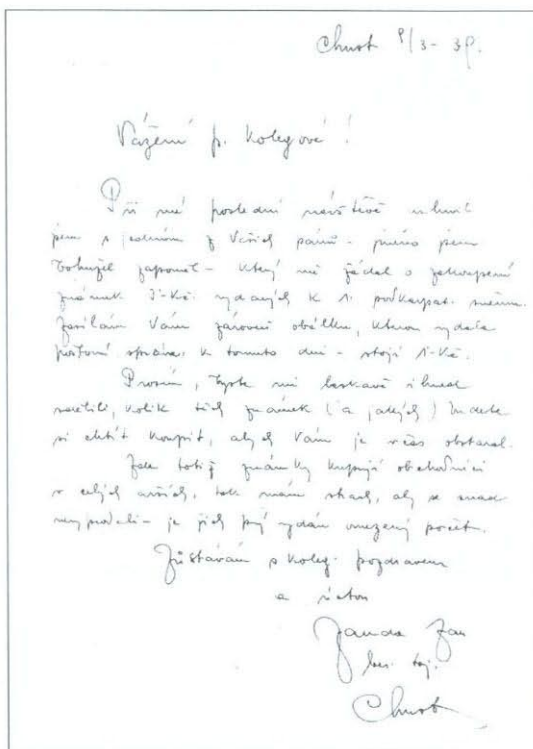 Chust 9/3 - 39.
Vážení p. Kolegové!
Při mé poslední návštěvě mluvil
jsem s jedním z Vašich pánů - jméno jsem
bohužel zapomněl - který mě žádal o zakoupení
známek 3-Kč vydaných k 1. podkarpat. sněmu.
Zasílám Vám zároveň obálku, kterou vydala
poštovní správa k tomuto dni - stojí 1-Kč.
Prosím, byste mi laskavě ihned
sdělili, kolik těch známek (a jakých) budete
si chtít koupit, abych Vám je včas obstaral.
Zde totiž známky kupují obchodníci
v celých arších, tak mám strach, aby se snad
nevyprodali - je jich prý vydán omezený počet.
Zůstávám s koleg. pozdravem
a úctou
Janda Jan
taj.
Chust